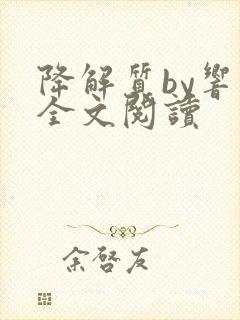 降解質by響
全文閱讀
余啓友